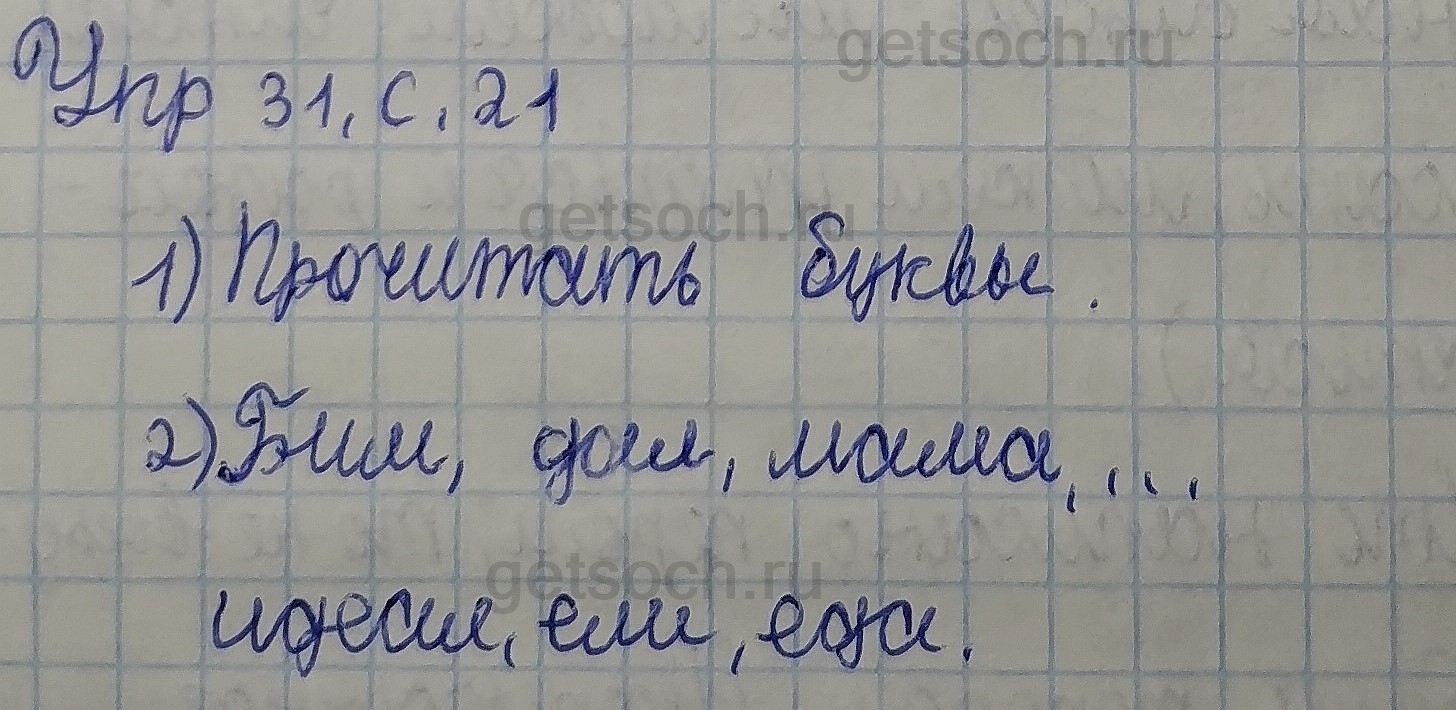 getsoch.ru
Упр 31, с. 21
getsoch.ru
1) Прочитать буквы.
2) Бим, дом, мама, ...
getsoch.ru
идеал, ели, еда.